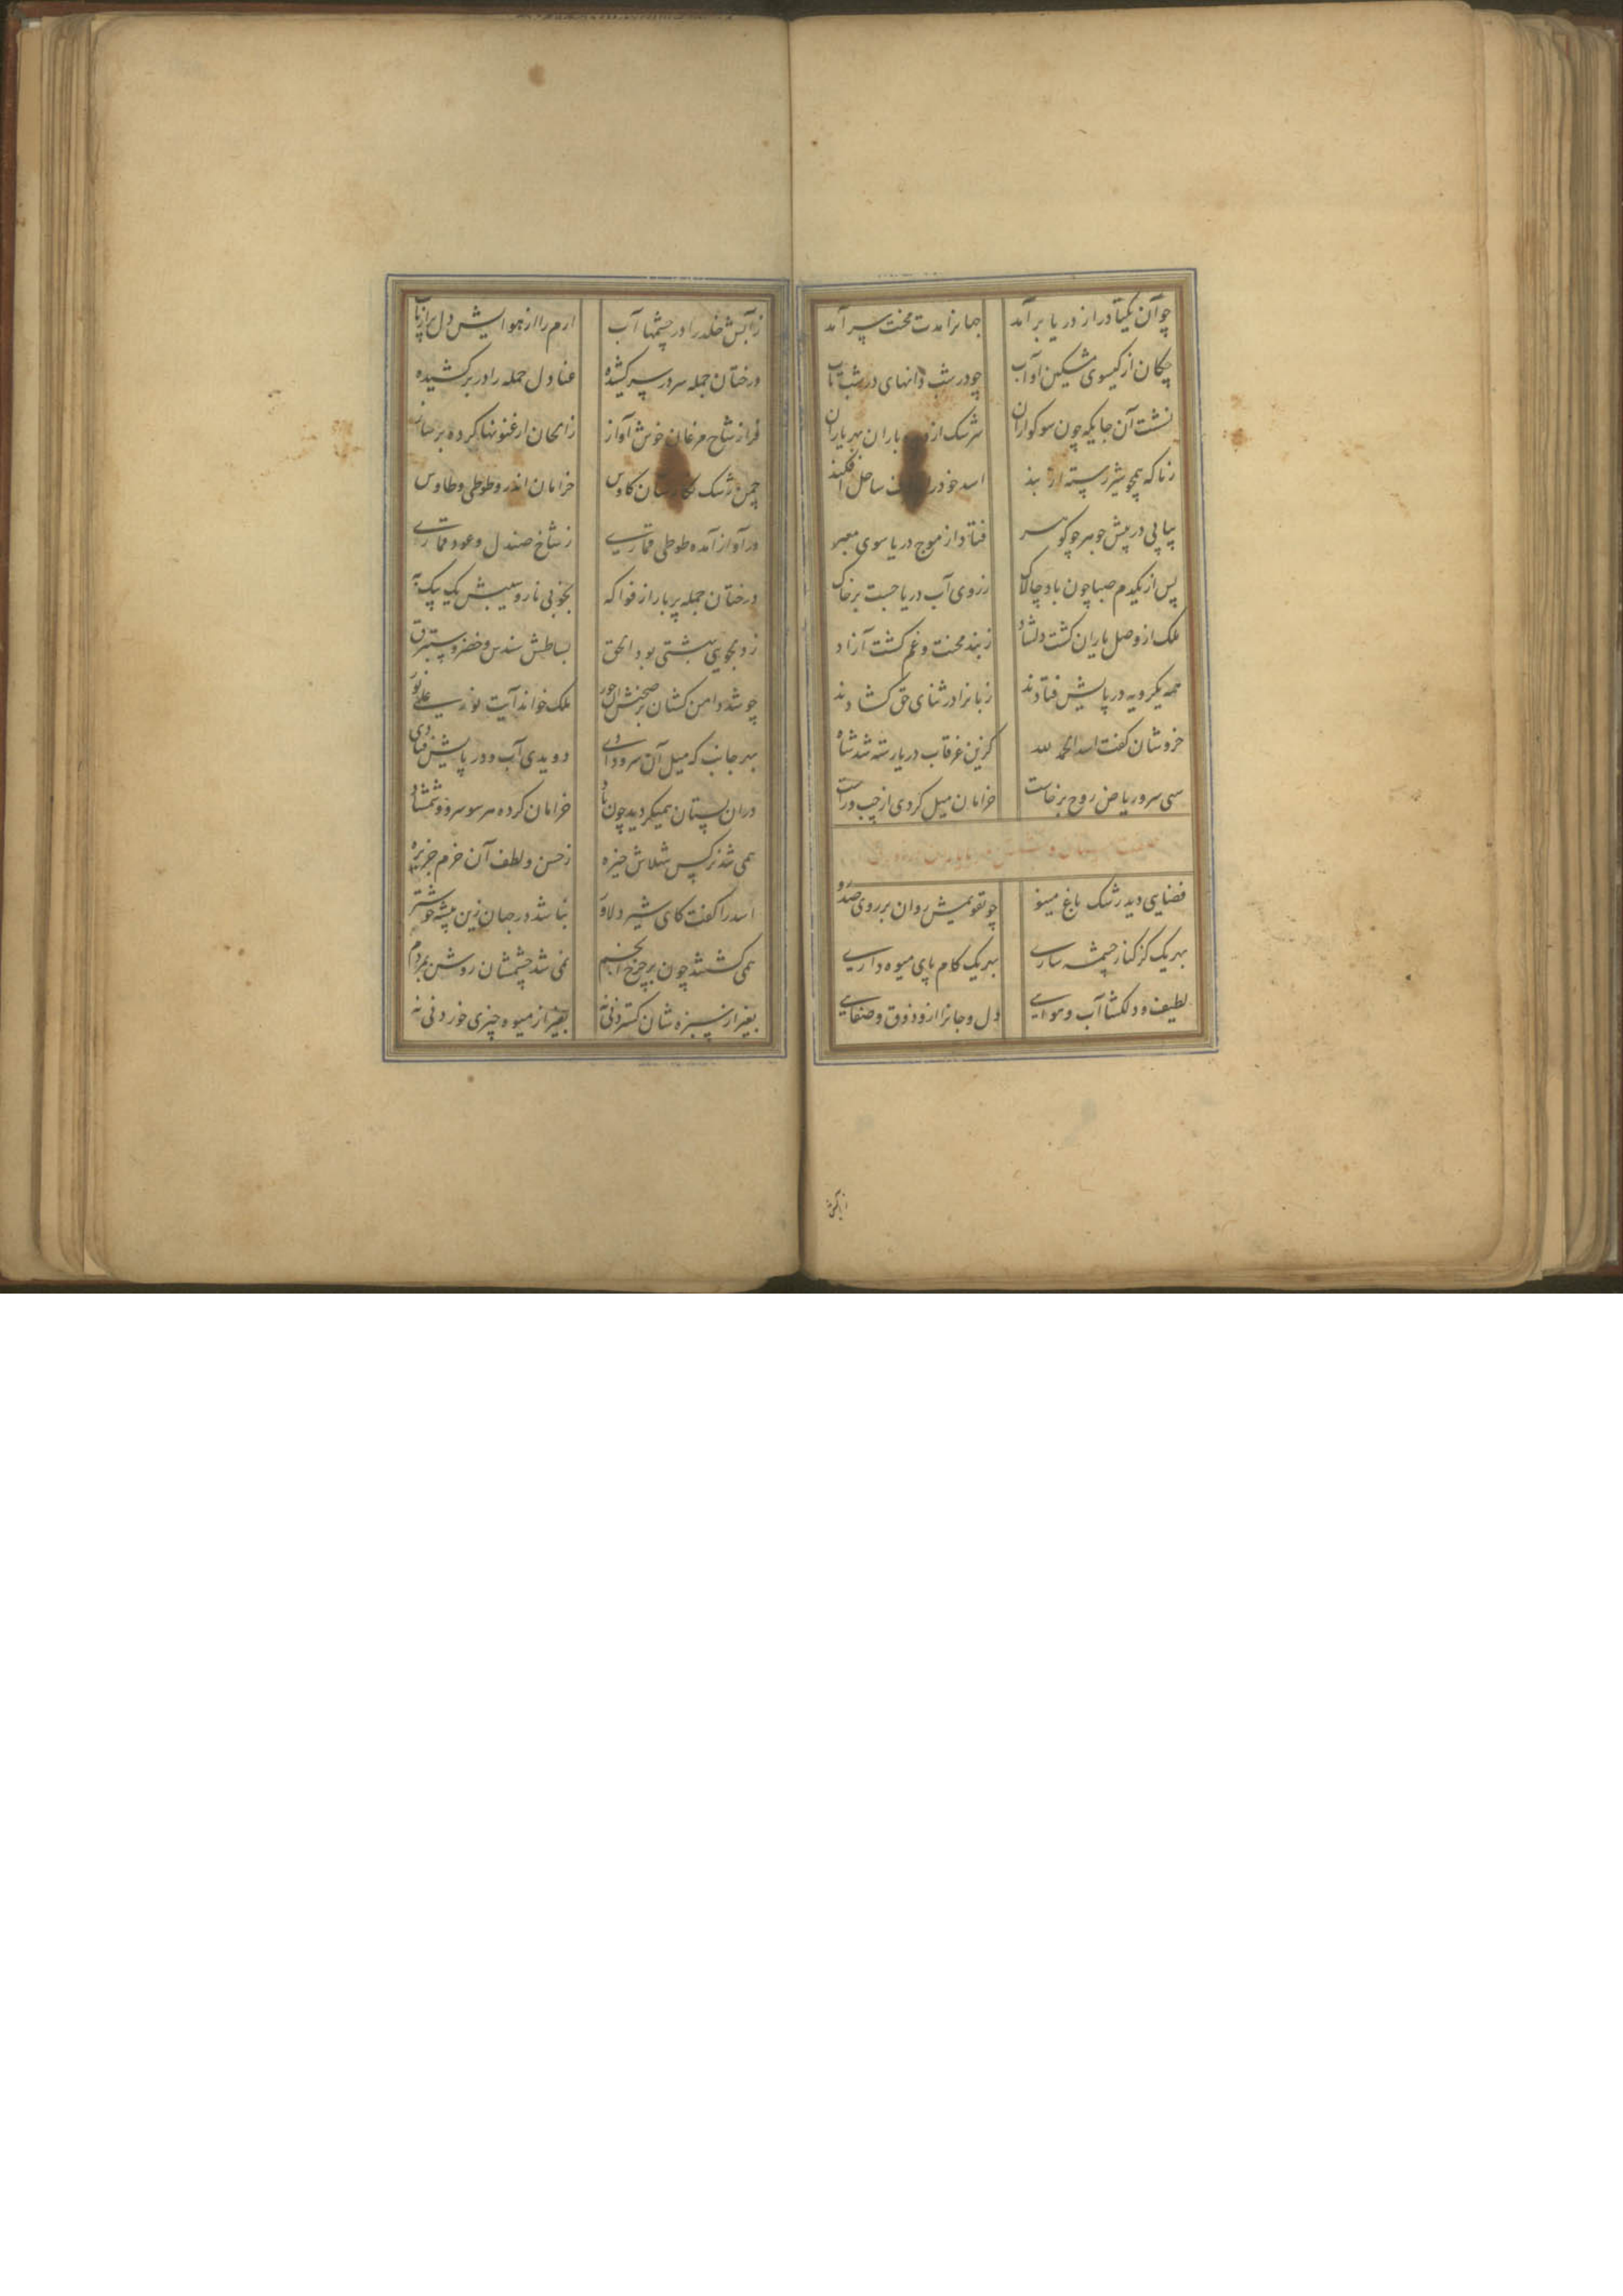 چو آن یکتا در از دریا برآمد جهانرا مدت محنت سرآمد
چکان از کیسوی مشکین او آب چو در شب دانهای در شب تاب
نشست آن جایکه چون سوکواران سرشک از باران بهر یاران
زناکه همچو شیر رسته از بند اسد خود را ساحل افکند
پیاپی در پیش جوهر چو کوهر فتاد از موج دریا سوی معبر
پس از یکدم صبا چون باد چالاک ز روی آب دریا جست بر خاک
ملک از وصل یاران کشت دلشاد ز بند محنت و غم کشت آزاد
همه یکرویه در پایش فتادند زبانرا در ثنای حق کشادند
خروشان کفت اسد الحمد لله کزین غرقاب دریا رسته شد شاه
سهی سرو ریاض روح برخاست خرامان میل کردی از چپ و راست
فضایی دید رشک باغ مینو چو تقویمش روان بر روی
بهر یک کز کنار چشمه ساری بهر یک کام پای میوه داری
لطیف و دلکشا آب و هوایی دل و جانرا ازو ذوق و صفایی
ز آبش خلد را در چشمها آب ارم را از هوایش دل پر از تاب
درختان جمله سر در سر کشیده عنادل جمله را در بر کشیده
فراز شاخ مرغان خوش آواز ز الحان ارغنونها کرده بر ساز
چمن رشک کاوس خرامان اندرو طوطی و طاوس
در آواز آمده طوطی قماری ز شاخ صندل و عود قماری
درختان جمله پر بار از فواکه بخوبی نار و سیبش یک بیک به
ز دلجویی بهشتی بود الحق بساطش سندس و خضر و ستبرق
چو شد دامن کشان بر صحنش آن حور ملک خواند آیت نور علی نور
بهر جانب که میل آن سرو دادی دویدی آب و در پایش فتادی
در آن بستان همیکردید چون باد خرامان کرده هر سو سرو و شمشاد
همی شد نرکس شهلاش خیره ز حسن و لطف آن خرم جزیره
اسد را کفت کای شیر دلاور نباشد در جهان زین بیشه خوشتر
همی کشتند چون بر چرخ انجم نمی شد چشمشان روشن بمردم
بغیر از سبزه شان کستردنی نه بغیر از میوه چیزی خوردنی نه
ز آبش